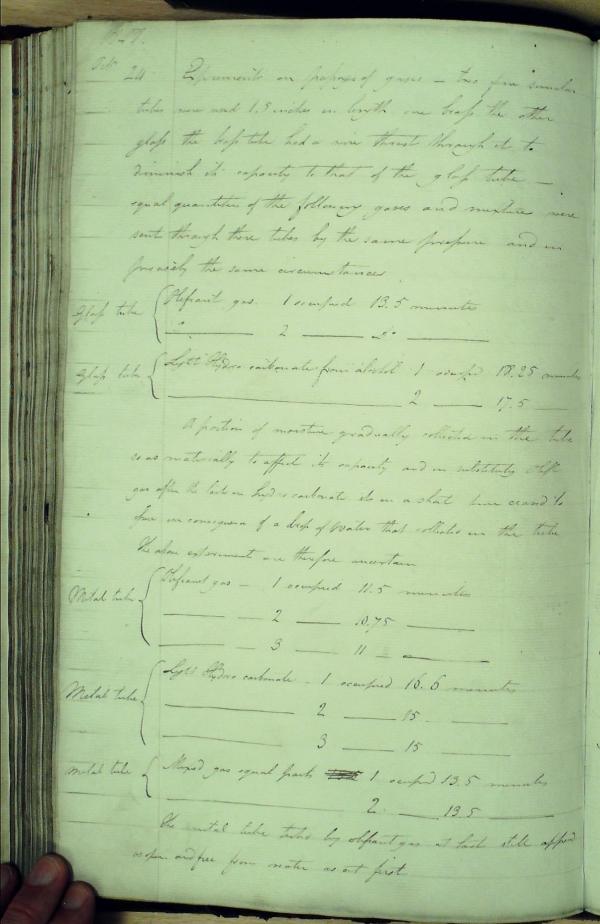 1817.
Octr 24 Experiments on passage of gases – two fine similar
tubes were used 1.5 inches in length one brass the other
glass the brass tube had a wire thrust through it to
diminish its capacity to that of the glass tube –
equal quantities of the following gases and mixture were
sent through these tubes by the same pressure and in
precisely the same circumstances
Glass tube { Olefiant gas. 1 occupied 13.5 minutes
Do —— 2 —— Do ——
Glass tube { Lght Hydro carbonate from alcohol 1 occupd 18.25 minutes
—— 2 —— 17.5 ——
A portion of moisture gradually collected in the tube
so as materially to affect its capacity and on substituting Olefit
gas after the last on hydro carbonate it in a short time ceased to
pass in consequence of a drop of water that collected in the tube
the above experiments are therefore uncertain
Metal tube { Olefiant gas – 1 occupied 11.5 minutes
—— 2 —— 10.75 ——
—— 3 —— 11 – ——
Metal tube { Lght Hydro carbonate – 1 occupied 16.6 minutes
—— 2 —— 15 ——
—— 3 —— 15 ——
Metal tube { Mixed gas equal parts 1 occupied 13.5 minutes
—— 2 —— 13.5 ——
The metal tube tried by olefiant gas at last still appeard
as open and free from water as at first